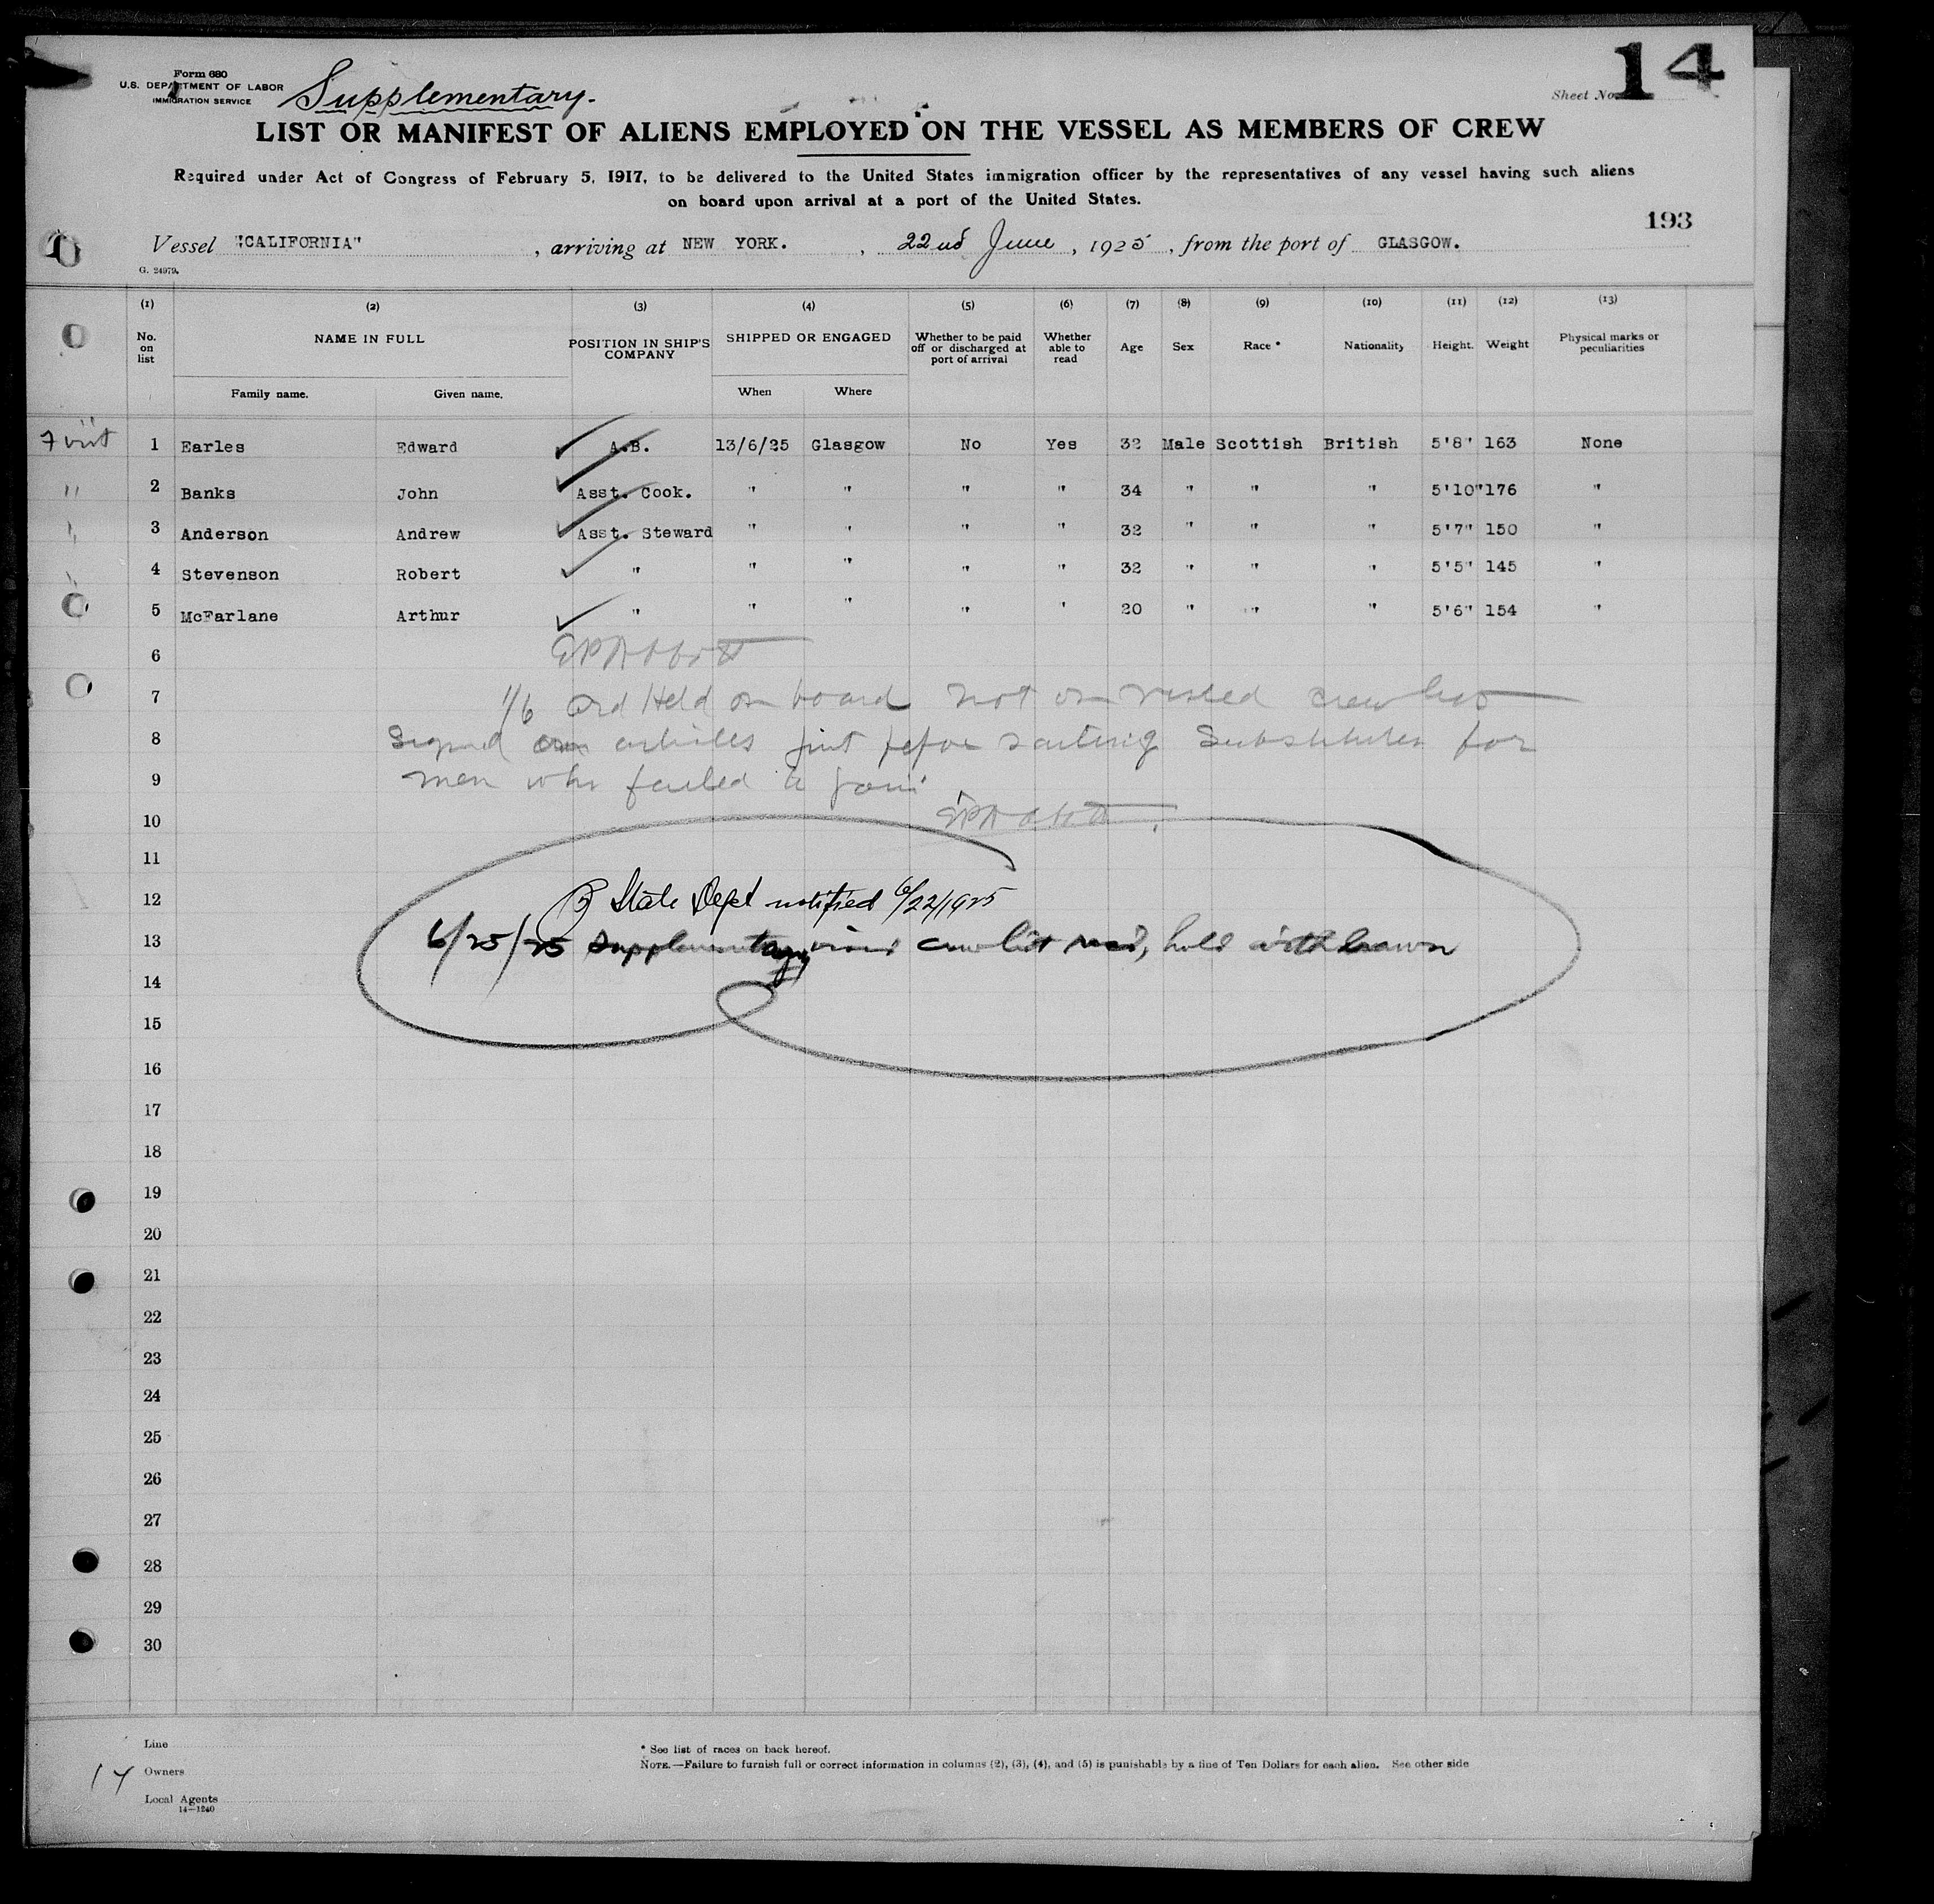 14
Form 680
U.S. DEPARTMENT OF LABOR
IMMIGRATION SERVICE
Supplementary.
Sheet No.
LIST OR MANIFEST OF ALIENS EMPLOYED ON THE VESSEL AS MEMBERS OF CREW
Required under Act of Congress of February 5, 1917, to be delivered to the United States immigration officer by the representatives of any vessel having such aliens
on board upon arrival at a port of the United States.
193
Vessel "CALIFORNIA", arriving at NEW YORK., 22nd June, 1925, from the port of GLASGOW.
G. 24979.
(1) (2) (3) (4) (5) (6) (7) (8) (9) (10) (11) (12) (13)
No. on list NAME IN FULL POSITION IN SHIP'S COMPANY SHIPPED OR ENGAGED Whether to be paid off or discharged at port of arrival Whether able to read Age Sex Race * Nationality Height. Weight Physical marks or peculiarities
Family name. Given name. When Where
1 Earles Edward A.B. 13/6/25 Glasgow No Yes 32 Male Scottish British 5'8" 163 None
" 2 Banks John Asst. Cook. " " " " 34 " " " 5'10" 176 "
" 3 Anderson Andrew Asst. Steward " " " " 32 " " " 5'7" 150 "
" 4 Stevenson Robert " " " " " 32 " " " 5'5" 145 "
5 McFarlane Arthur " " " " " 20 " " " 5'6" 154 "
6
7 1/6 Ord Held on board not on visaed crew list
8 Signed on articles just before sailing Substitutes for
9 men who failed to join
10
11
12 State Dept notified 6/22/1925
13 6/25/25 Supplementary visaed crew list rec'd, hold withdrawn
14
15
16
17
18
19
20
21
22
23
24
25
26
27
28
29
30
Line
Owners
Local Agents
14—1240
* See list of races on back hereof.
NOTE.—Failure to furnish full or correct information in columns (2), (3), (4), and (5) is punishable by a fine of Ten Dollars for each alien. See other side
14